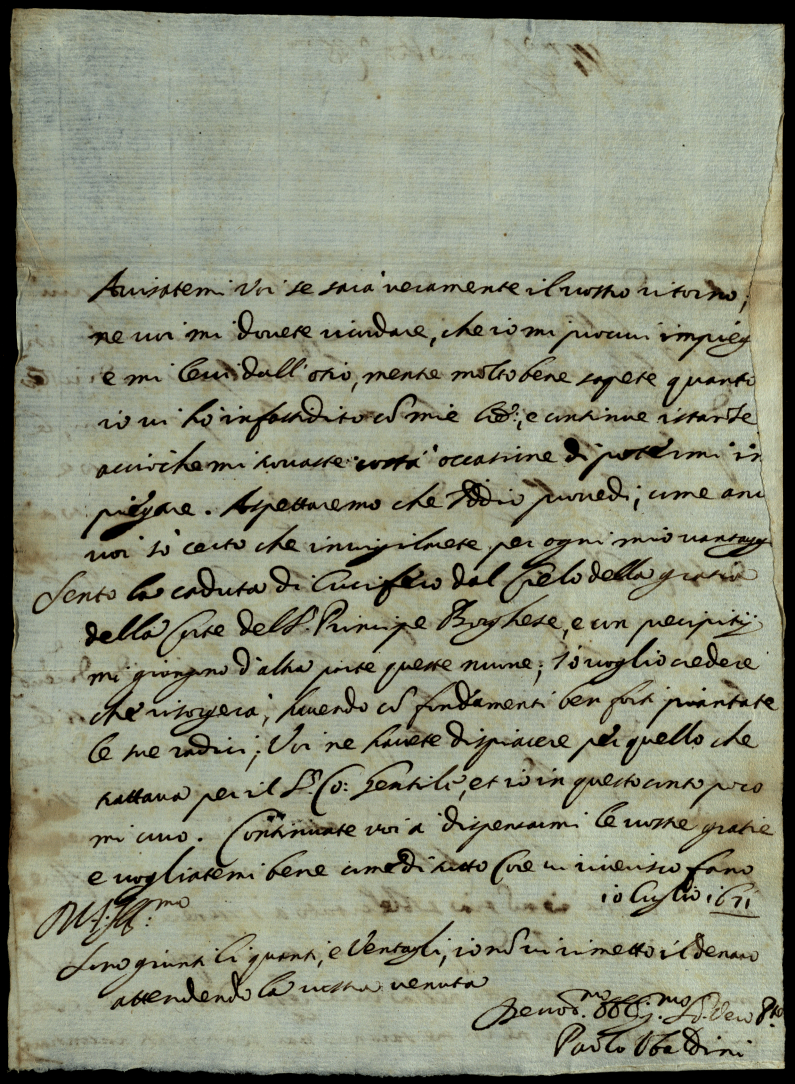 Auisatemi Voi se sarà veramente il vostro ritorno;
ne voi mi douete ricordare, che io mi procuri impieg
e mi leui dall'otio, mentre molto bene sapete quanto
io vi hò infastidito cõ mie lre, e continue istanze
accioche mi trouaste costà occasione di potermi im
piegare. Aspettaremo che Iddio prouedi; come anc
voi sò certo che inuigilarete per ogni mio vantagg
Sento la caduta di Lucifero dal Cielo della gratia
della Corte del S.r Principe Borghese, e con precipitij
mi giongono d'altra parte queste nuoue; Io voglio credere
che risorgerà, hauendo cõ fondamenti ben forti piantate
le sue radici; Voi ne hauete dispiacere per quello che
trattaua per il S.r Co: Gentili, et io in questo conto poco
mi curo. Continuate voi à dispensarmi le vostre gratie
e vogliatemi bene come di tutto Core vi riuerisco fano
10 Luglio 1671
Sono giunti li guanti, e Ventagli, io nõ vi rimetto il denaro
attendendo la vostra venuta
Deuot.mo Obblig.mo
Paolo Vbaldini